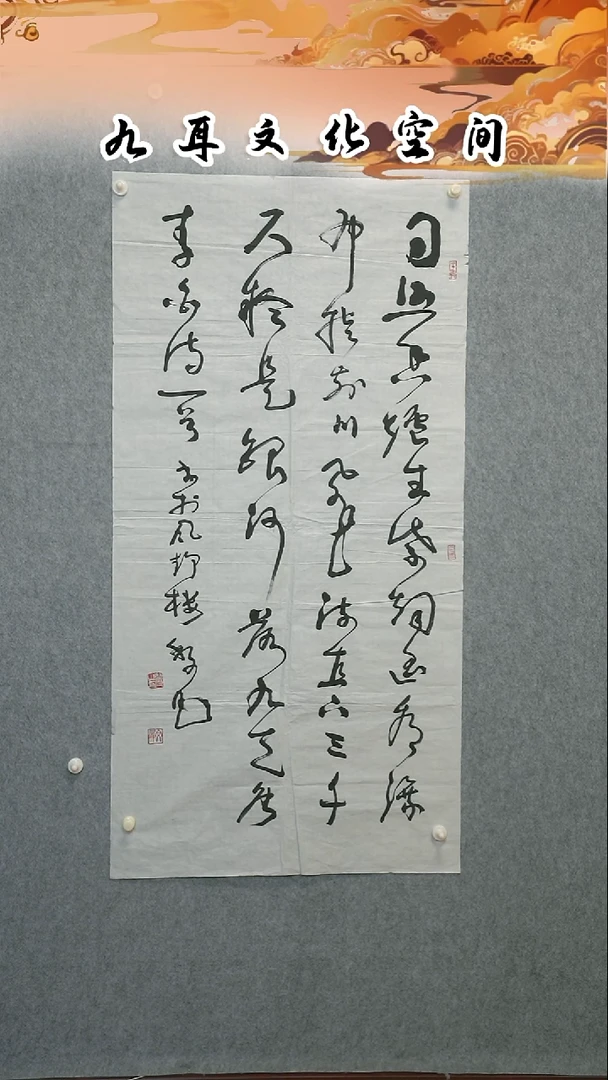 九耳文化空间
日照香炉生紫烟遥看瀑
布挂前川飞流直下三千
尺疑是银河落九天唐
李白诗一首书于风柳楼